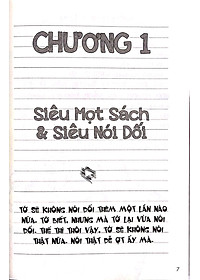 CHƯƠNG 1
Siêu Mọt Sách
& Siêu Nói Dối
TỚ SẼ KHÔNG NÓI DỐI THÊM MỘT LẦN NÀO
NỮA. TỚ BIẾT, NHƯNG MÀ TỚ LẠI VỪA NÓI
DỐI. THẾ THÌ THÔI VẬY. TỚ SẼ KHÔNG NÓI
THẬT NỮA. NÓI THẬT DỄ ỢT ẤY MÀ.
7